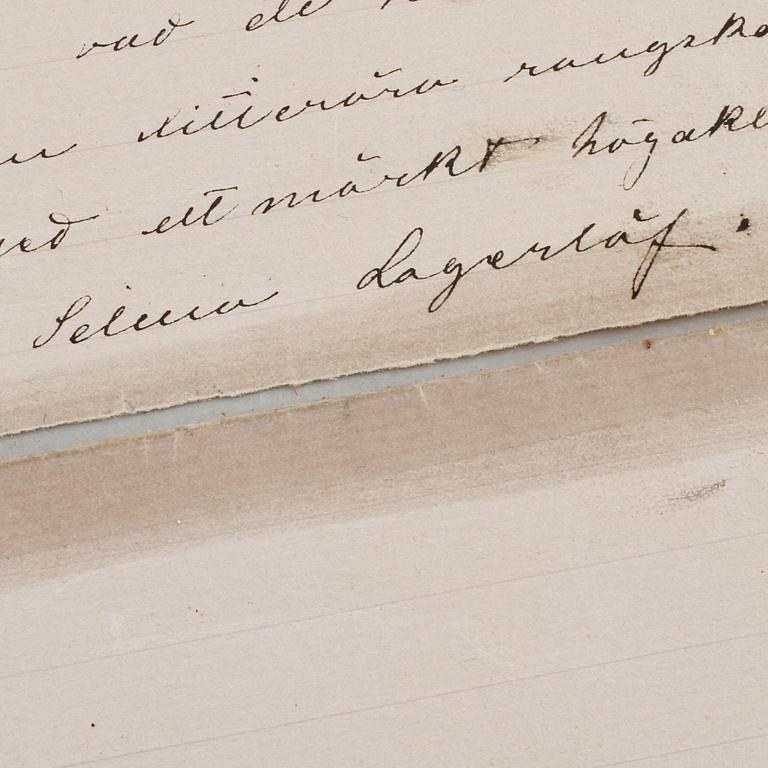 vad de
litterära rangska
med ett märkt högakt
Selma Lagerlöf.